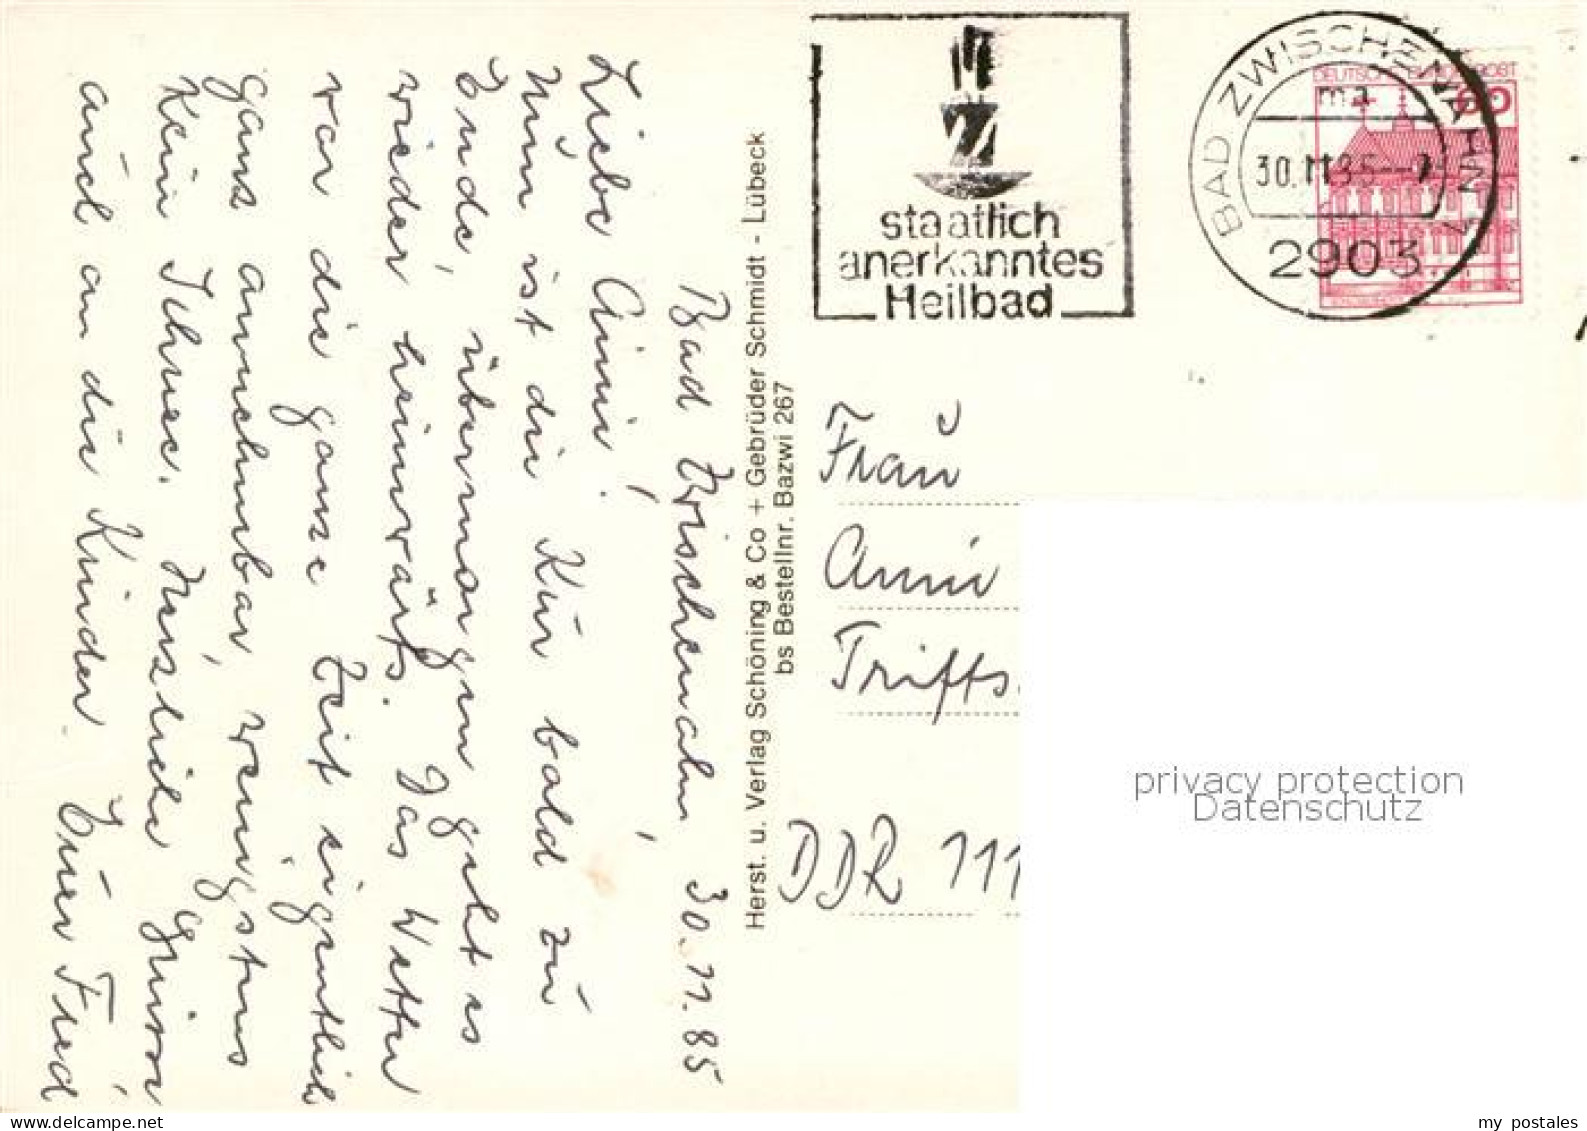 Bad Zwischenahn, 30.11.85
Liebe Anni!
Nun ist die Kur bald zu
Ende, übermorgen geht es
wieder heimwärts. Das Wetter
war die ganze Zeit eigentlich
ganz annehmbar, wenigstens
kein Schnee. Herzliche Grüsse
auch an die Kinder. Euer Fried
Herst. u. Verlag Schöning & Co + Gebrüder Schmidt - Lübeck
bs Bestellnr. Bazwi 267
staatlich
anerkanntes
Heilbad
BAD ZWISCHENAHN 5
ma
30.11.85--7
2903
DEUTSCHE BUNDESPOST
60
Frau
Anni
Triffts
DDR 111
privacy protection
Datenschutz
www.delcampe.net
my postales